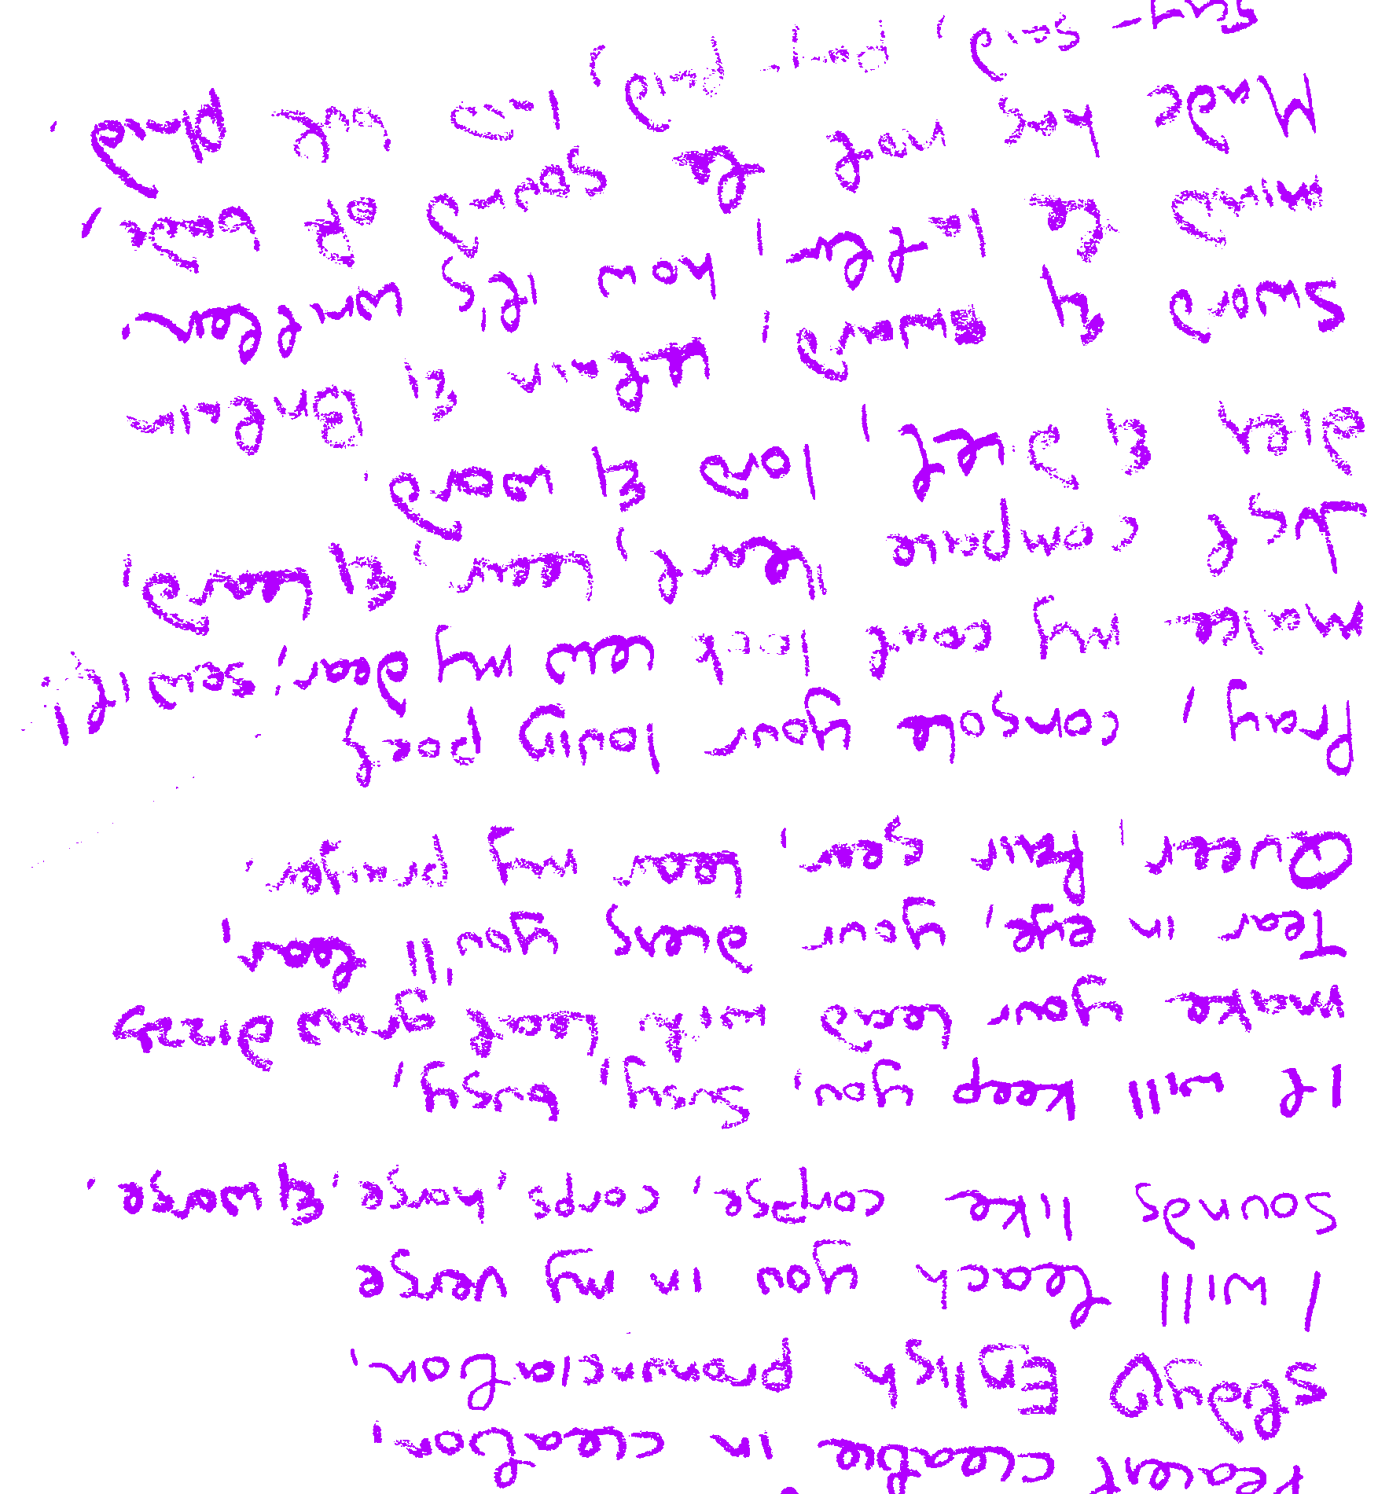 creation,
Studying English pronunciation,
I will teach you in my verse
Sounds like corpse, corps, horse, & worse.
It will keep you, Susy, busy,
make your head with heat grow dizzy
Tear in eye, your dress you'll tear,
Queer, fair seer, hear my prayer,
Pray, console your loving poet,
Make my coat look new my dear, sew it!
Just compare heart, hear, & heard,
dies & diet, lord & word,
Sword & sward, retain & Britain
mind the latter, how it's written,
Made has not the sound of bade,
Say-said, pay-paid, laid but plaid.